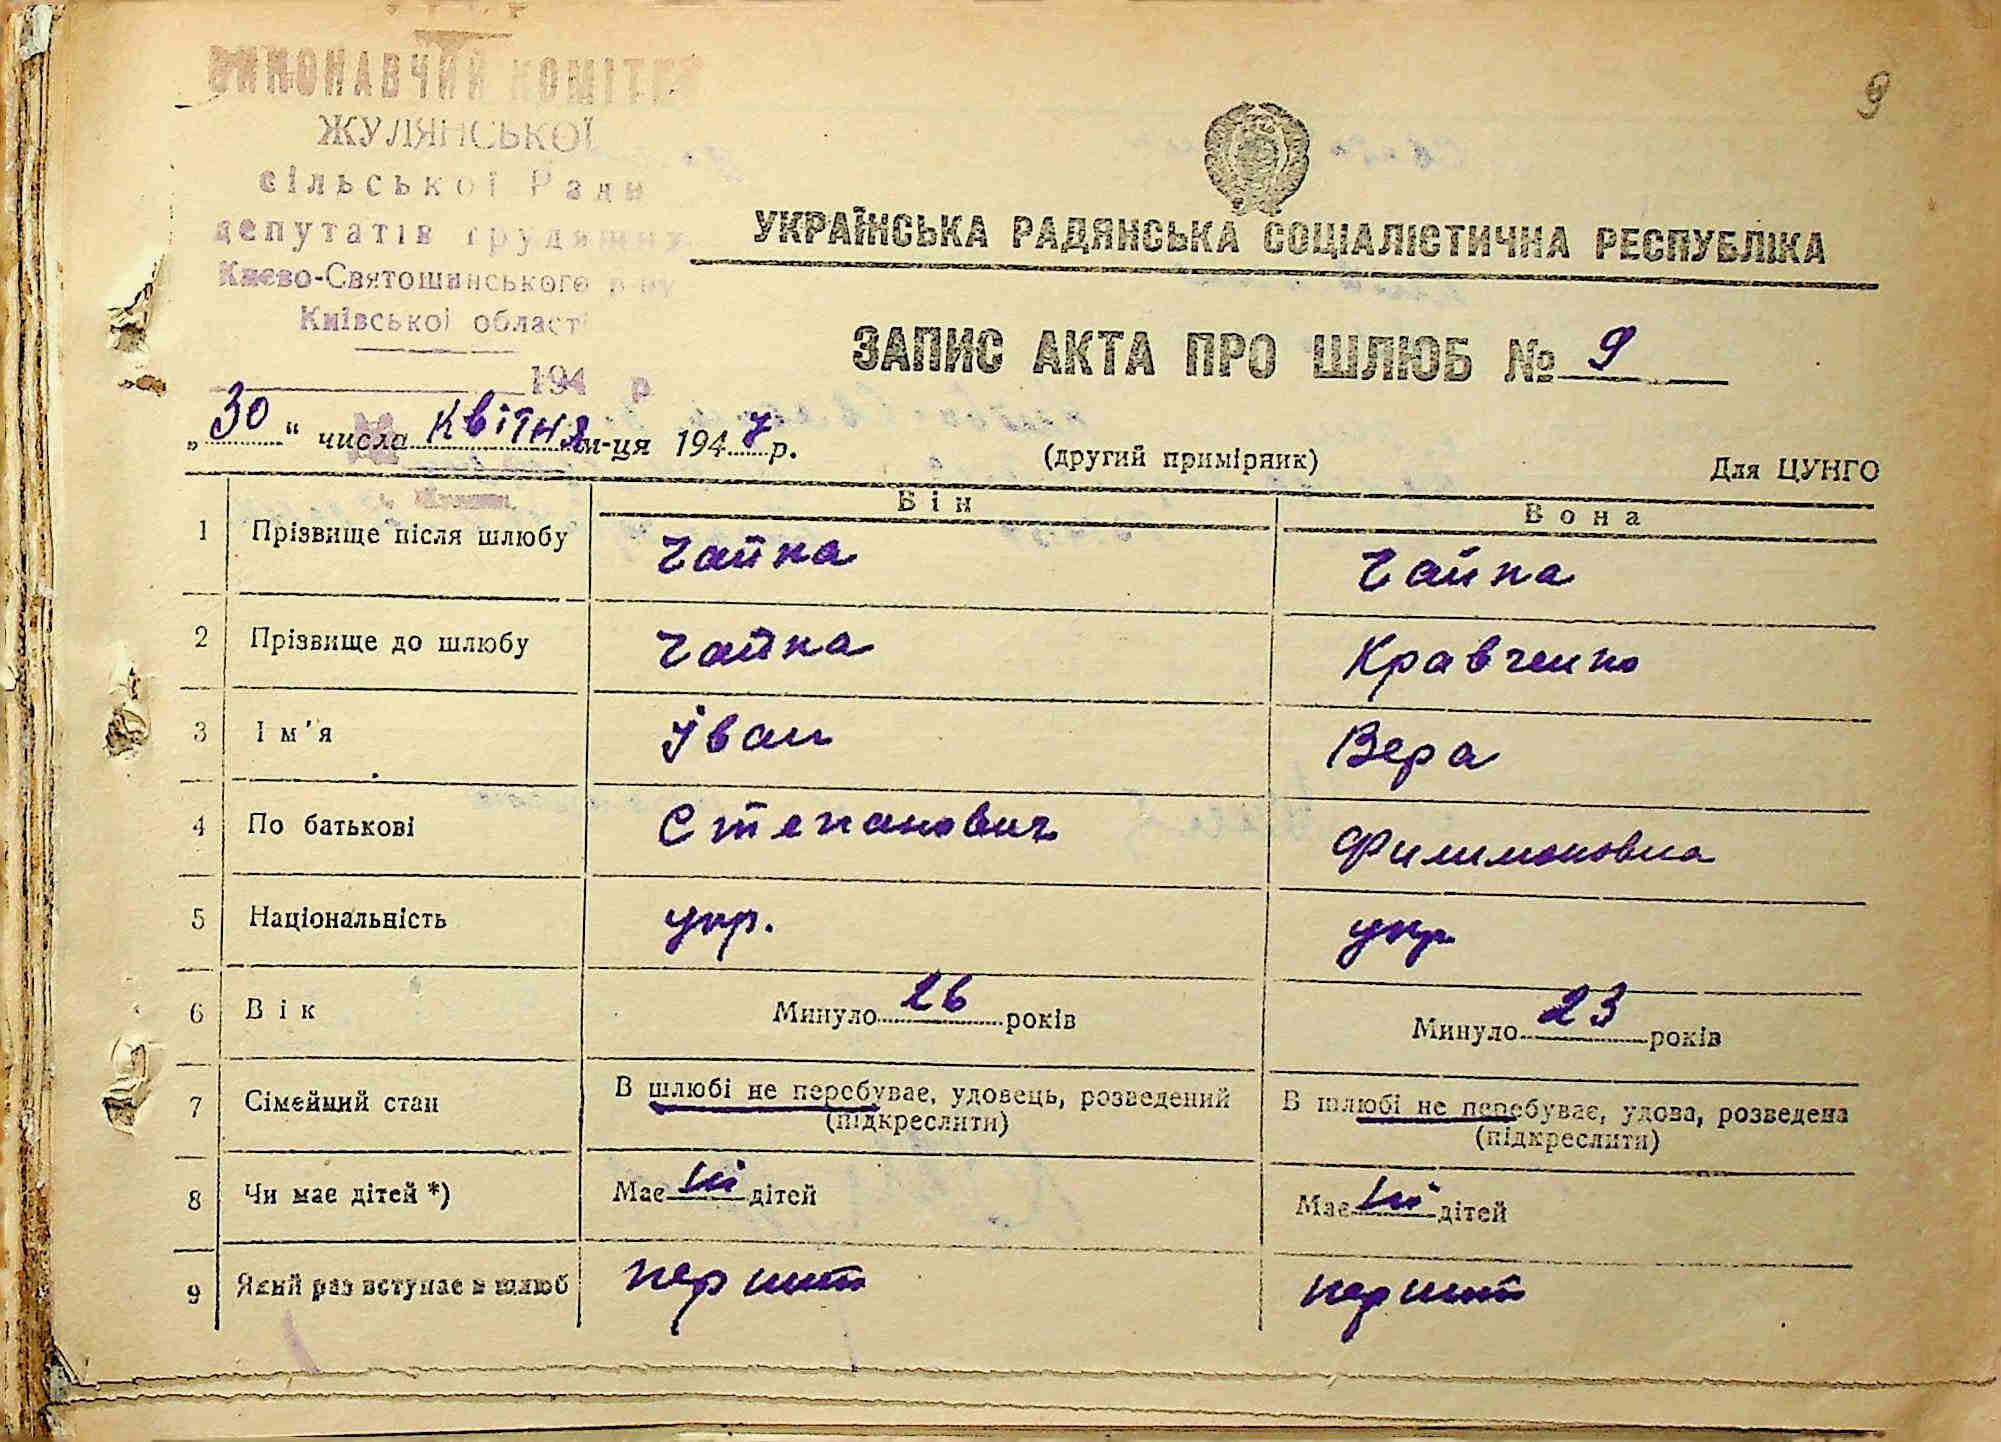 9
ВИКОНАВЧИЙ КОМІТЕТ
ЖУЛЯНСЬКОЇ
сільської Ради
депутатів трудящих
Києво-Святошинського р-ну
Київської області
194 р.
УКРАЇНСЬКА РАДЯНСЬКА СОЦІАЛІСТИЧНА РЕСПУБЛІКА
ЗАПИС АКТА ПРО ШЛЮБ № 9
„30“ числа квітня м-ця 1947 р.
(другий примірник) Для ЦУНГО
Він Вона
1 Прізвище після шлюбу Чайка Чайка
2 Прізвище до шлюбу Чайка Кравченко
3 Ім'я Іван Вера
4 По батькові Степанович Филимоновна
5 Національність укр. укр
6 Вік Минуло 26 років Минуло 23 років
7 Сімейний стан В шлюбі не перебуває, удовець, розведений В шлюбі не перебуває, удова, розведена
(підкреслити) (підкреслити)
8 Чи має дітей *) Має ні дітей Має ні дітей
9 Який раз вступає в шлюб перший перший